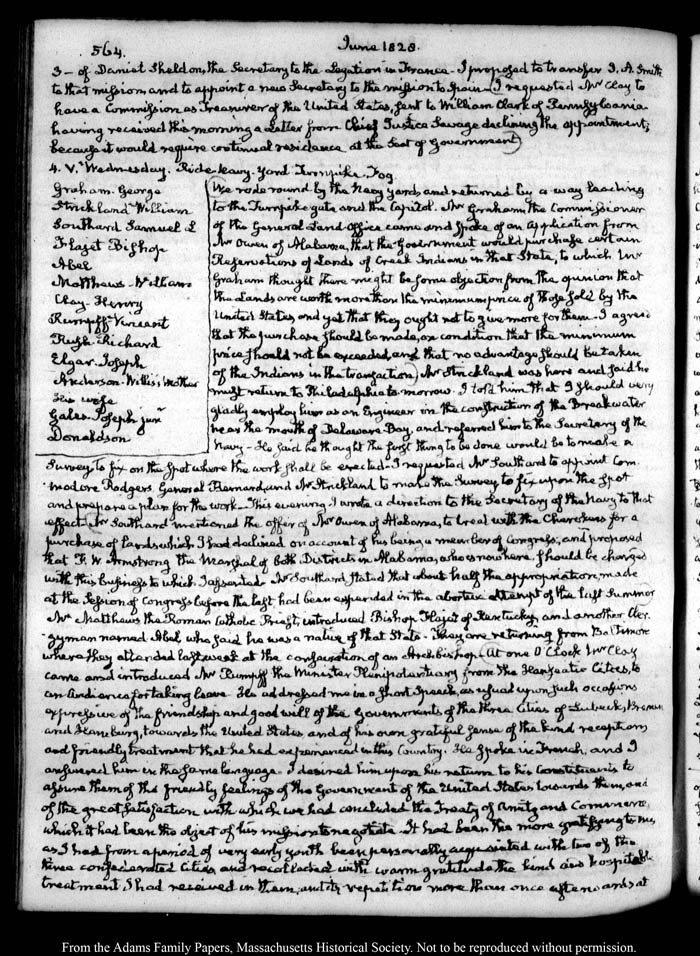 564.
June 1828.
3 — of Daniel Sheldon, the Secretary to the Legation in France. I proposed to transfer J. A. Smith
to that mission, and to appoint a new Secretary to the mission to Spain. I requested Mr Clay to
have a Commission as Treasurer of the United States, sent to William Clark of Pennsylvania
having received this morning a Letter from Chief Justice Savage declining the appointment;
because it would require continual residence at the Seat of Government.
4. V. Wednesday. Ride Navy-Yard Turnpike. Fog.
Graham. George
Strickland William
Southard Samuel L
Flaget Bishop
Abel
Matthews. William
Clay. Henry
Rumpff Vincent
Rush. Richard
Elgar. Joseph
Anderson. Willis, Mother
His wife
Gales. Joseph junr
Donaldson
We rode round by the Navy yard, and returned by a way leading
to the Turnpike gate and the Capitol. Mr Graham the Commissioner
of the General Land Office came and spoke of an application from
Mr Owen of Alabama, that the Government would purchase certain
Reservations of Lands of Creek Indians in that State, to which Mr
Graham thought there might be some objection from the opinion that
the Lands are worth more than the minimum price of those sold by the
United States, and yet that they ought not to give more for them. I agreed
that the purchase should be made, on condition that the minimum
price should not be exceeded, and that no advantage should be taken
of the Indians in the transaction) Mr Strickland was here and said he
must return to Philadelphia to-morrow. I told him that I should very
gladly employ him as an Engineer in the construction of the Breakwater
near the mouth of Delaware Bay, and referred him to the Secretary of the
Navy — He said he thought the first thing to be done would be to make a
Survey, to fix on the spot where the work shall be erected — I requested Mr Southard to appoint Com-
modore Rodgers, General Bernard, and Mr Strickland to make the Survey to fix upon the spot
and prepare a plan for the work — This evening I wrote a direction to the Secretary of the Navy to that
effect. Mr Southard mentioned the offer of Mr Owen of Alabama, to treat with the Cherokees for a
purchase of lands which I had declined on account of his being a member of Congress; and proposed
that F. W. Armstrong the Marshal of both Districts in Alabama, who is now here, should be charged
with this business to which I assented. Mr Southard stated that about half the appropriation, made
at the Session of Congress before the last, had been expended in the abortive attempt of the last Summer
Mr Matthews the Roman Catholic Priest, introduced Bishop Flaget of Kentucky, and another Cler-
gyman named Abel who said he was a native of that State. They are returning from Baltimore
where they attended last week at the consecration of an Archbishop. (At one O'Clock Mr Clay
came and introduced Mr Rumpff the Minister Plenipotentiary from the Hanseatic Cities, to
an Audience for taking leave. He addressed me in a short Speech, as usual upon such occasions
expressive of the friendship and good will of the Governments of the three Cities of Lubeck, Bremen
and Hamburg, towards the United States, and of his own grateful sense of the kind reception
and friendly treatment that he had experienced in this Country. He spoke in French, and I
answered him in the same language. I desired him upon his return to his Constituents to
assure them of the friendly feelings of the Government of the United States towards them, and
of the great satisfaction with which we had concluded the Treaty of Amity and Commerce,
which it had been the object of his mission to negotiate. It had been the more gratifying to me,
as I had from a period of very early youth been personally acquainted with two of the
three confederated Cities, and recollected with warm gratitude the kind and hospitable
treatment I had received in them, and its repetition more than once afterwards at
From the Adams Family Papers, Massachusetts Historical Society. Not to be reproduced without permission.